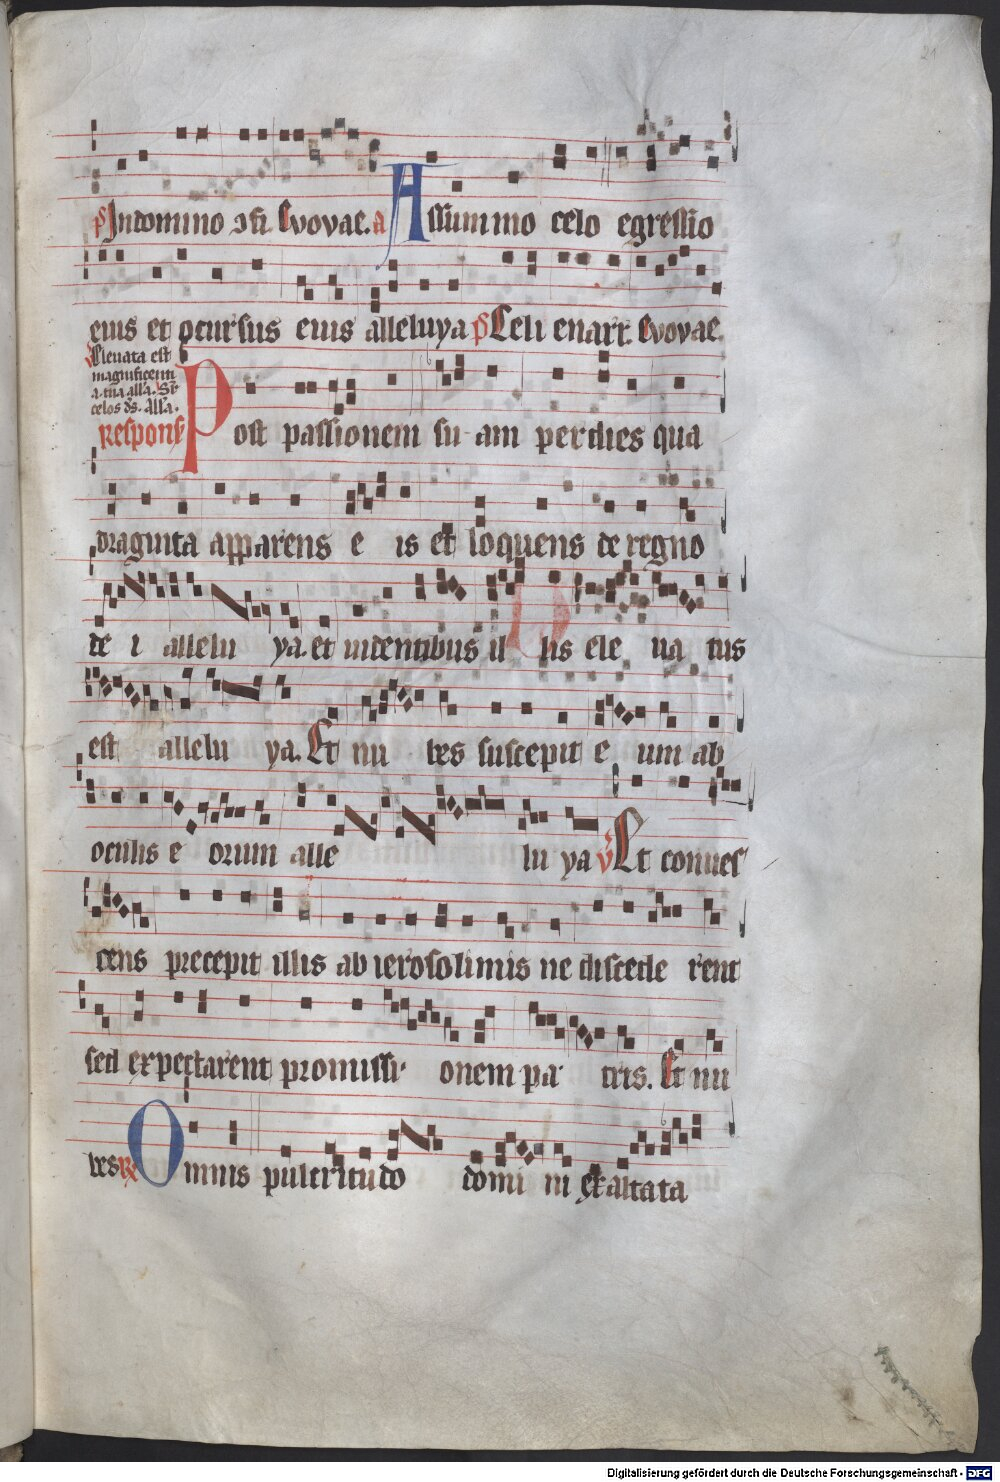 21
ps Indomino ɔfi Evovae. a Assummo celo egressio
eius et ocursus eius alleluya ps Celi enarr. Evovae.
Eleuata est
magnificenti
a tua alla.
celos ds. alla.
respons Post passionem su am per dies qua
draginta apparens e is et loquens de regno
de i allelu ya. et uidentibus il lis ele ua tus
est allelu ya. Et nu bes suscepit e um ab
oculis e orum alle lu ya v Et conues
cens precepit illis ab ierosolimis ne discede rent
sed expectarent promissi onem pa tris. Et nu
bes Omnis pulcritudo domi ni exaltata
Digitalisierung gefördert durch die Deutsche Forschungsgemeinschaft - DFG